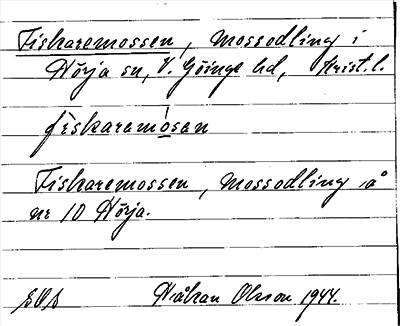 Fiskaremossen, mossodling i
Nörja sn, V. Göinge hd, Krist. l.
fìskaremósan
Fiskaremossen, mossodling å
nr 10 Nörja.
Håkan Olsson 1944.